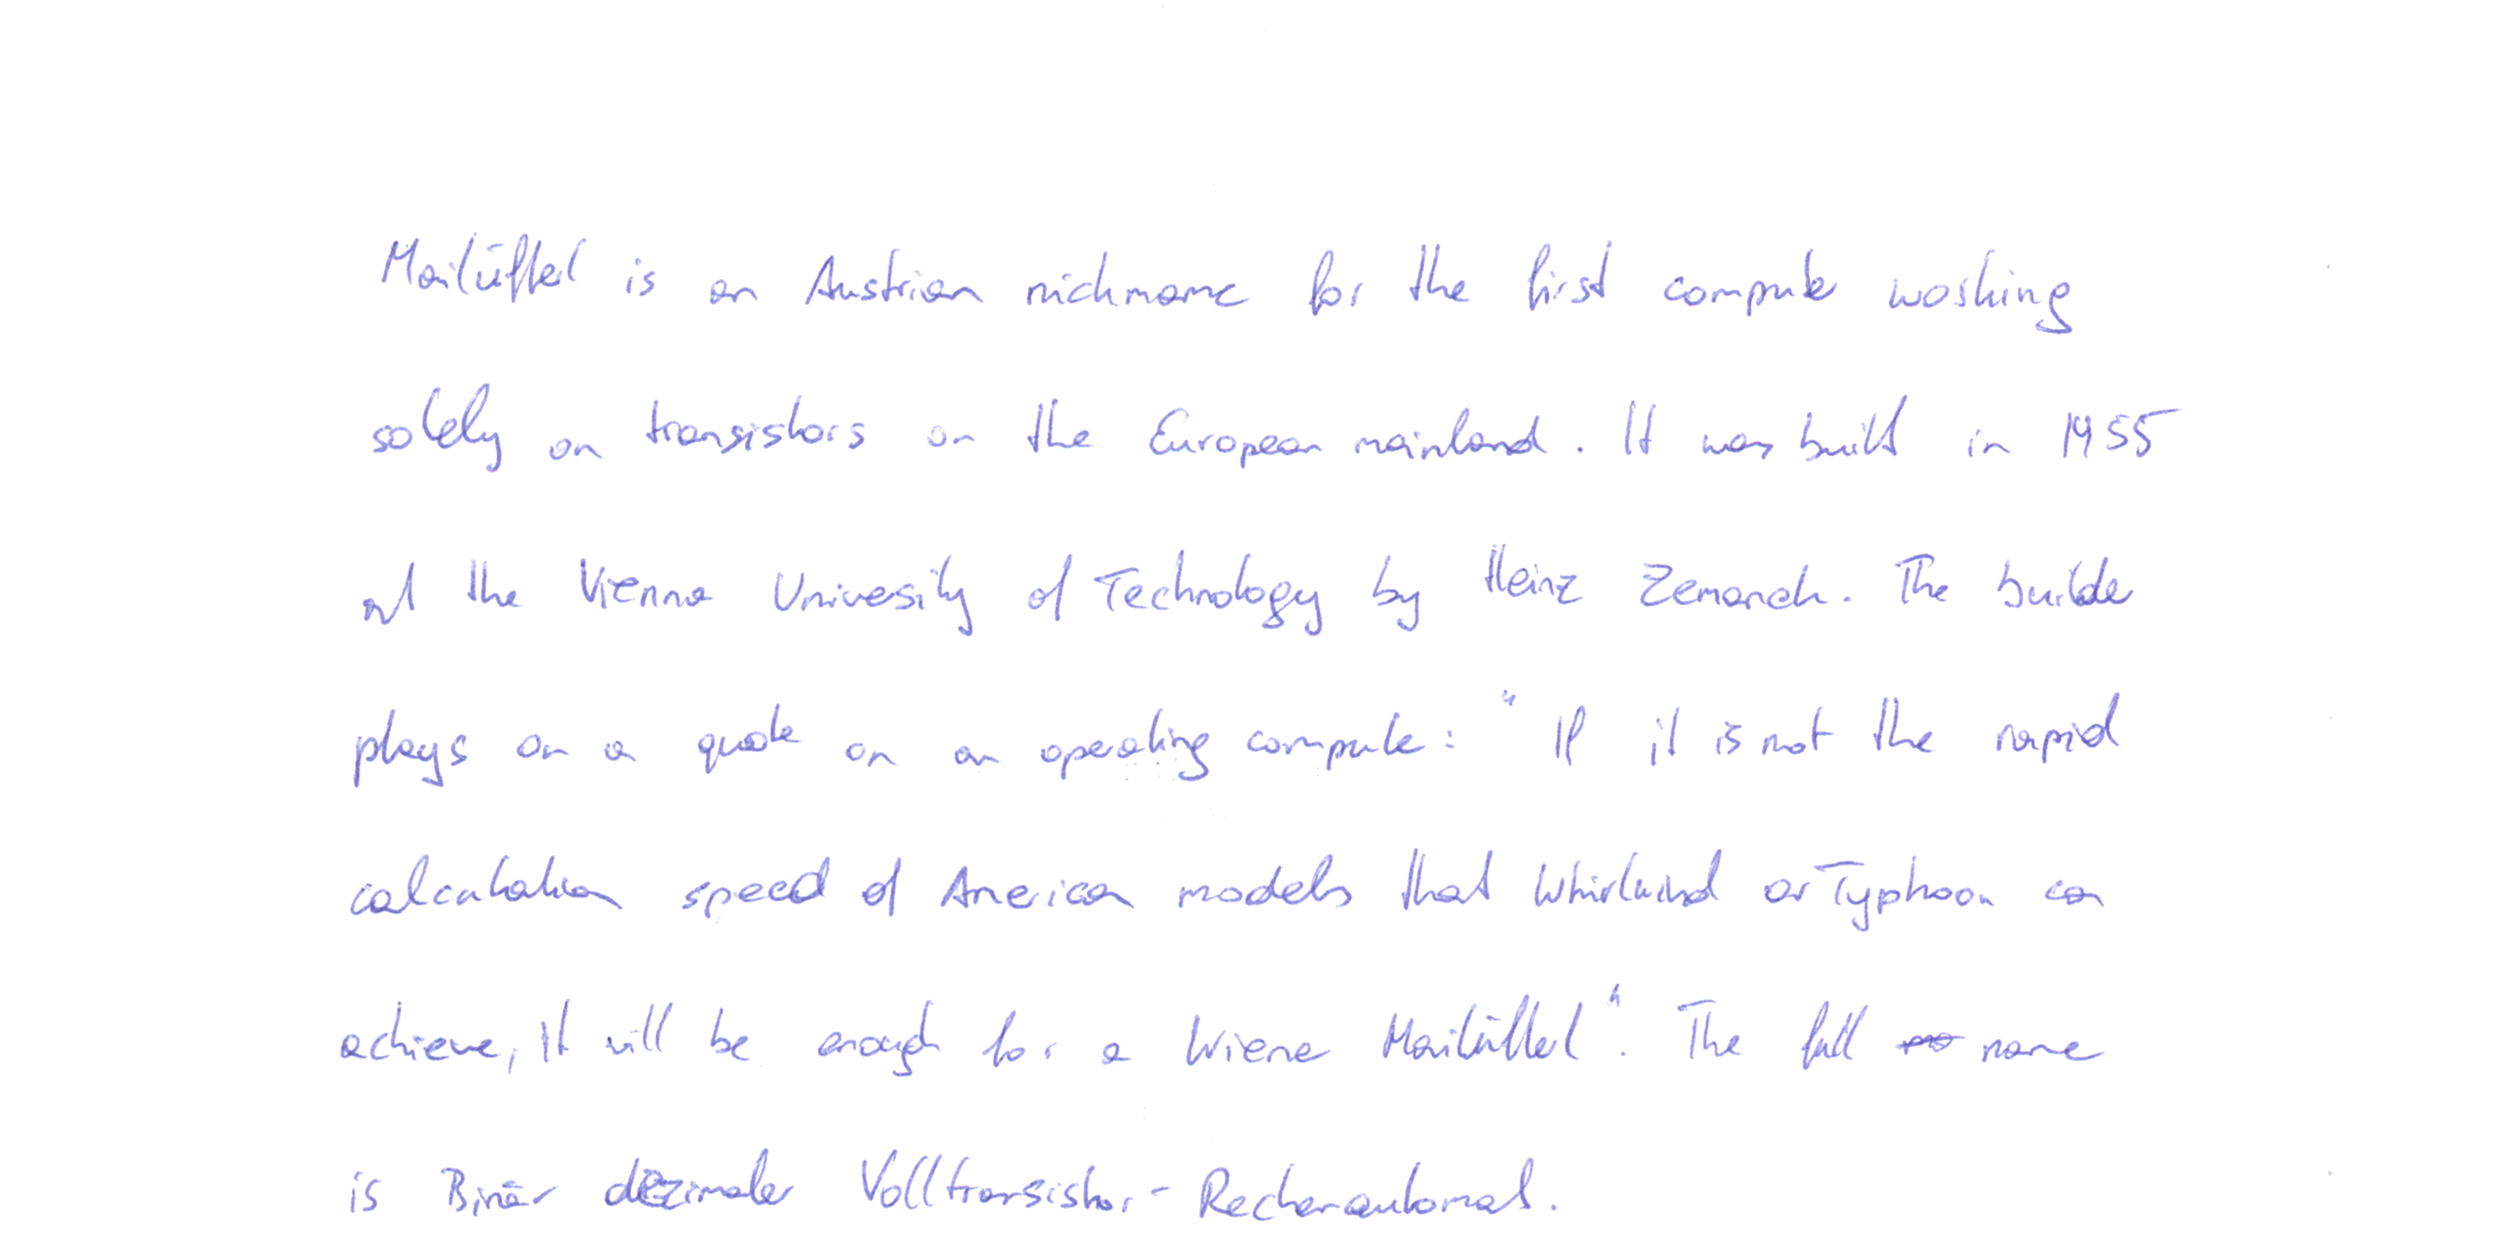 Mailüfterl is an Austrian nickname for the first computer working
solely on transistors on the European mainland. It was built in 1955
at the Vienna University of Technology by Heinz Zemanek. The builder
plays on a quote on an operating computer: "If it is not the rapid
calculation speed of American models that Whirlwind or Typhoon can
achieve, it will be enough for a Wiener Mailüfterl". The full name
is Binär dezimaler Volltransistor-Rechenautomat.